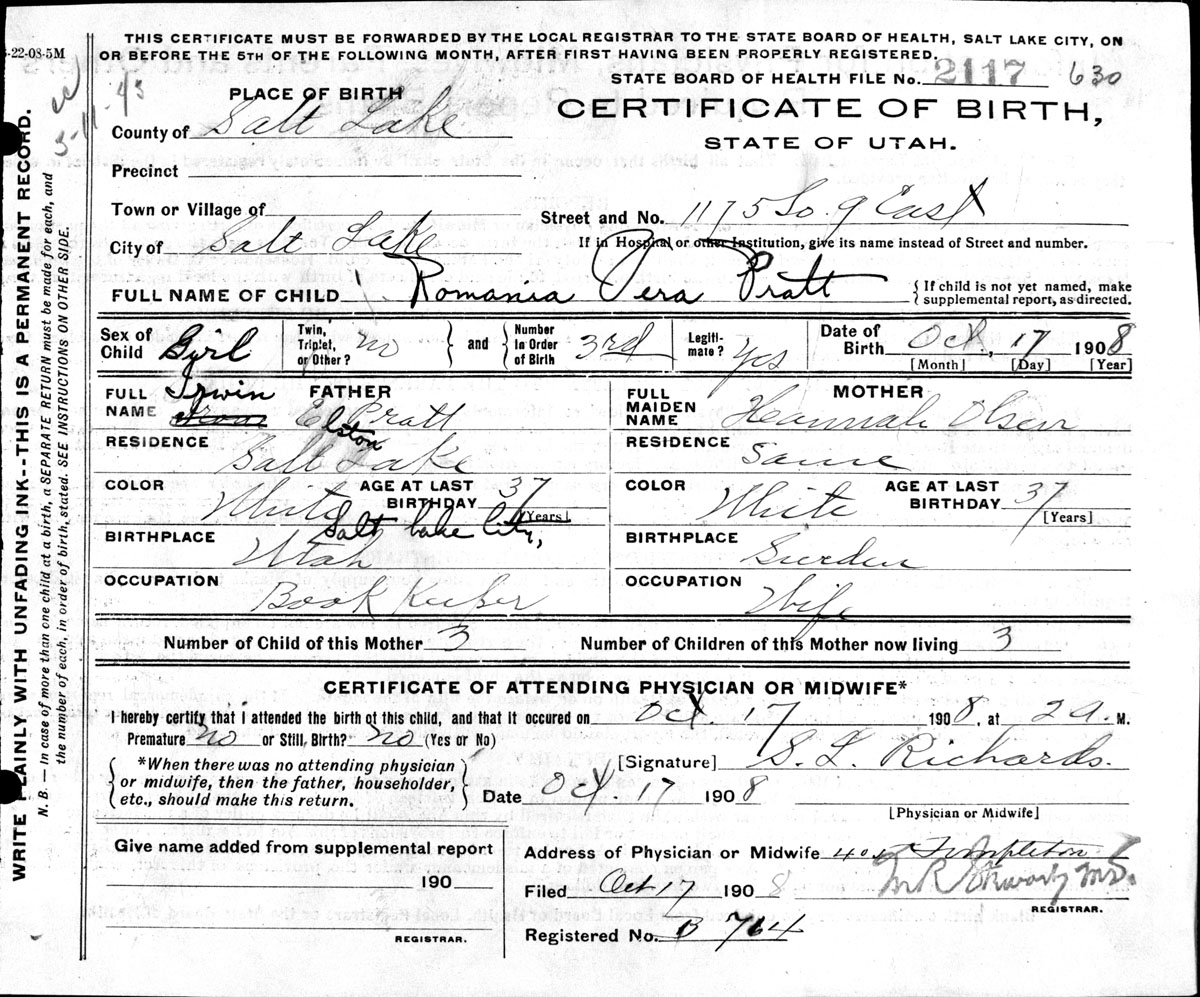 5-22-08-5M
THIS CERTIFICATE MUST BE FORWARDED BY THE LOCAL REGISTRAR TO THE STATE BOARD OF HEALTH, SALT LAKE CITY, ON
OR BEFORE THE 5TH OF THE FOLLOWING MONTH, AFTER FIRST HAVING BEEN PROPERLY REGISTERED.
STATE BOARD OF HEALTH FILE No. 2117 630
3-11-43
PLACE OF BIRTH
CERTIFICATE OF BIRTH,
STATE OF UTAH.
County of Salt Lake
Precinct
Town or Village of
Street and No. 1175 So. 9 East
City of Salt Lake
If in Hospital or other Institution, give its name instead of Street and number.
FULL NAME OF CHILD Romania Vera Pratt
{ If child is not yet named, make supplemental report, as directed.
Sex of Child Girl
Twin, Triplet, or Other? no } and { Number In Order of Birth 3rd
Legitimate? Yes
Date of Birth Oct. 17 1908
[Month] [Day] [Year]
FULL NAME FATHER Irwin Elston Pratt
FULL MAIDEN NAME MOTHER Hannah Olsen
RESIDENCE Salt Lake
RESIDENCE Same
COLOR White AGE AT LAST BIRTHDAY 37 [Years]
COLOR White AGE AT LAST BIRTHDAY 37 [Years]
BIRTHPLACE Salt Lake City, Utah
BIRTHPLACE Sweden
OCCUPATION Book Keeper
OCCUPATION Wife
Number of Child of this Mother 3 Number of Children of this Mother now living 3
CERTIFICATE OF ATTENDING PHYSICIAN OR MIDWIFE*
I hereby certify that I attended the birth of this child, and that it occured on Oct. 17 1908, at 2 a. M.
Premature no or Still Birth? no (Yes or No)
{ *When there was no attending physician or midwife, then the father, householder, etc., should make this return. }
[Signature] S. L. Richards.
Date Oct. 17 1908
[Physician or Midwife]
Give name added from supplemental report
190
REGISTRAR.
Address of Physician or Midwife Templeton
Filed Oct 17 1908
M.D.
REGISTRAR.
Registered No. B 764
WRITE PLAINLY WITH UNFADING INK--THIS IS A PERMANENT RECORD.
N. B.—In case of more than one child at a birth, a SEPARATE RETURN must be made for each, and
the number of each, in order of birth, stated. SEE INSTRUCTIONS ON OTHER SIDE.